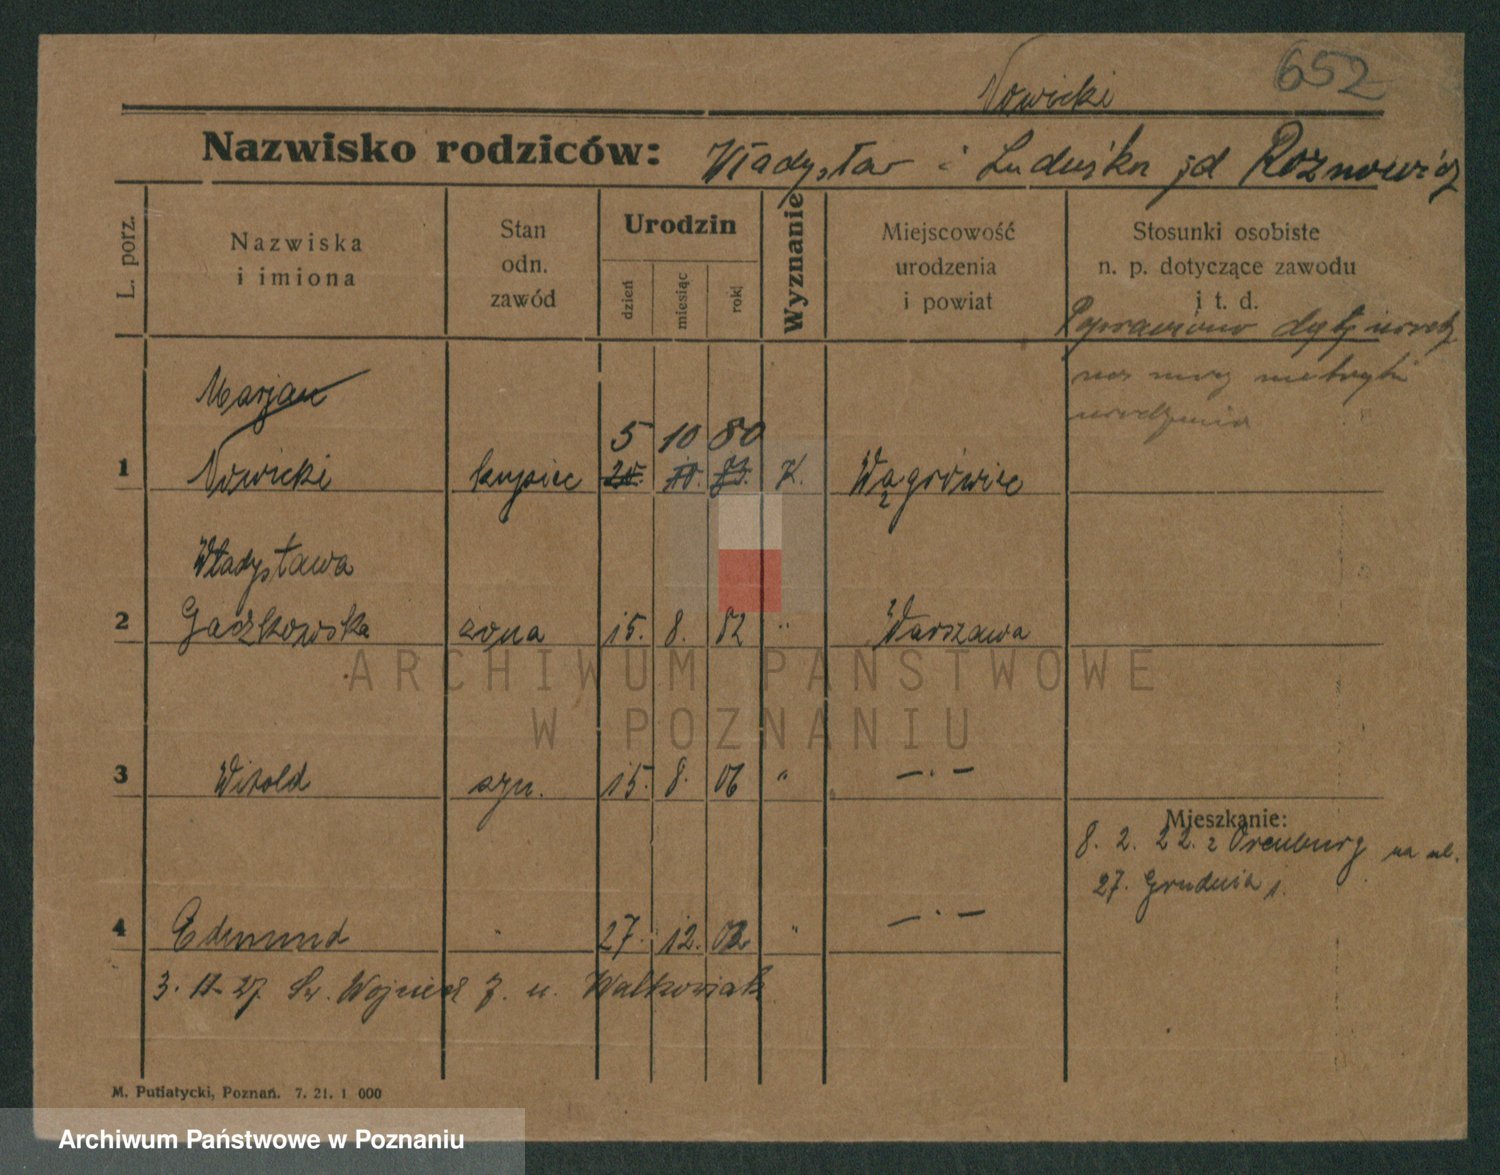 652
Nowicki
Nazwisko rodziców: Władysław i Ludwika zd Roznowicz
L. porz.
Nazwiska i imiona
Stan odn. zawód
Urodzin
dzień
miesiąc
rok
Wyznanie
Miejscowość urodzenia i powiat
Stosunki osobiste n. p. dotyczące zawodu i t. d.
Poprawiono
metryki
urodzenia
Marjan
5 10 80
1 Nowicki kupiec K. Wągrówiec
Władysława
2 Gaczkowska żona 15. 8. 82 " Warszawa
3 Witold syn. 15. 8. 06 " — . —
Mieszkanie:
8. 2. 22. z Orenburg na ul.
27. Grudnia 1.
4 Edmund " 27. 12. 02 " — . —
3. 11. 27. Św. Wojciech 7. u. Walkowiak
M. Putiatycki, Poznań. 7. 21. 1 000
ARCHIWUM PAŃSTWOWE
W POZNANIU
Archiwum Państwowe w Poznaniu